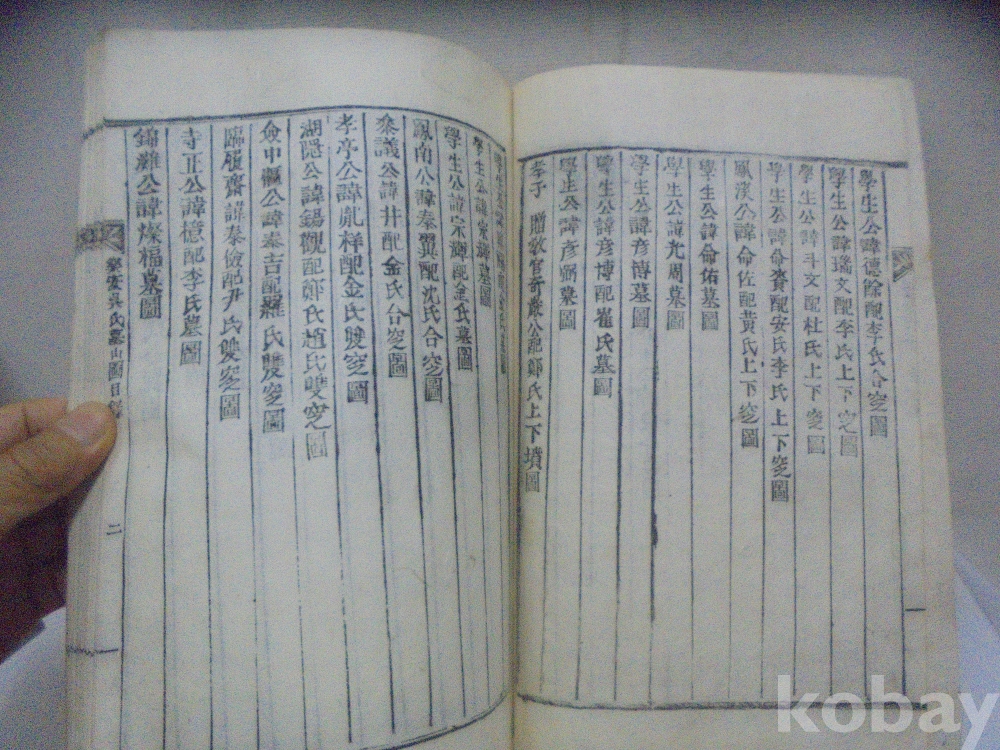 學生公諱德徐配李氏合窆圖
學生公諱璠文配李氏上下窆圖
學生公諱斗文配杜氏上下窆圖
學生公諱命賚配安氏李氏上下窆圖
鳳溪公諱命佐配黃氏上下窆圖
學生公諱命佑墓圖
學生公諱允周墓圖
學生公諱彦博墓圖
學生公諱彦博配崔氏墓圖
學生公諱彦弼墓圖
孝子贈敎官奇巖公配鄭氏上下墳圖
學生公諱
學生公諱宗
學生公諱宗澤配金氏墓圖
鳳南公諱泰翼配沈氏合窆圖
叅議公諱井配金氏合窆圖
孝亭公諱胤祥配金氏雙窆圖
湖隱公諱錫觀配鄭氏趙氏雙窆圖
僉中樞公諱泰吉配羅氏雙窆圖
臨履齋諱泰儉配尹氏雙窆圖
寺正公諱億配李氏墓圖
錦灘公諱燦福墓圖
樂安吳氏墓山圖目錄
二
kobay